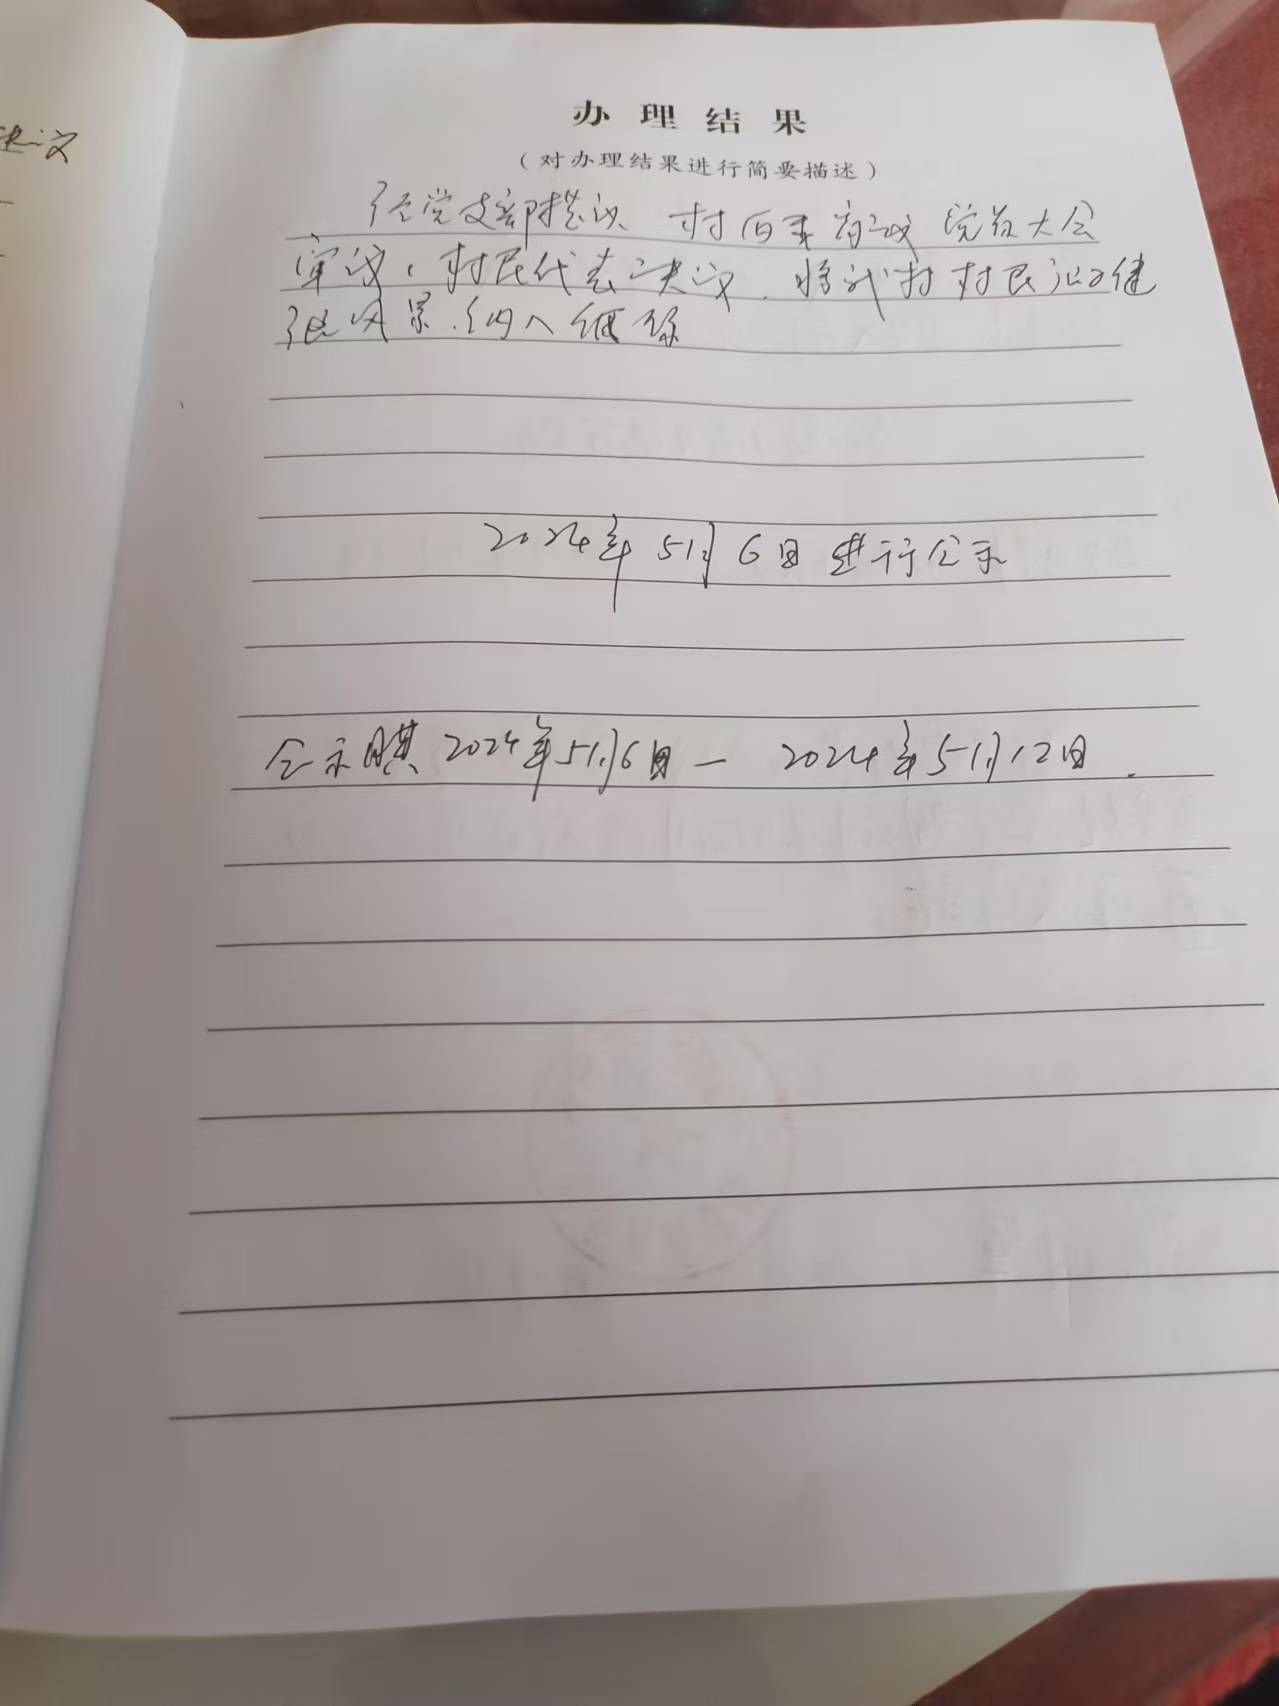 决议
办理结果
（对办理结果进行简要描述）
经党支部提议 村两委商议 党员大会
审议，村民代表决议，将我村村民
纳入低
2024年5月6日进行公示
公示期2024年5月6日一2024年5月12日.